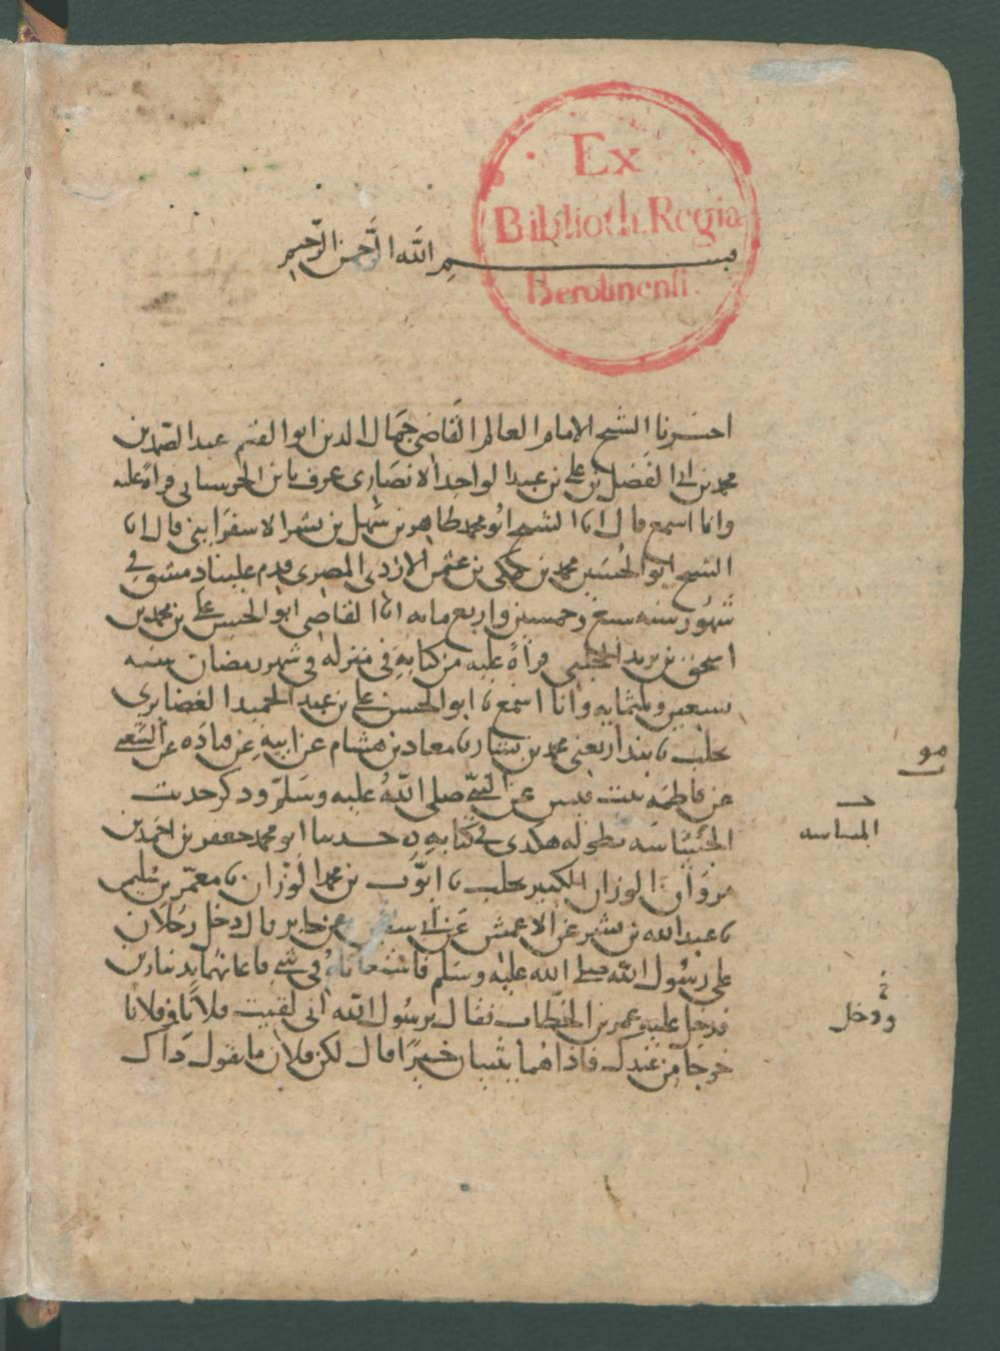 Ex
Biblioth. Regia
Berolinensi.
بسم الله الرحمن الرحيم
اخبرنا الشيخ الامام العالم القاضي جمال الدين ابو القسم عبد الصمد بن
محمد بن ابي الفضل بن علي بن عبد الواحد الانصاري عرف بابن الحرستاني قراة عليه
وانا اسمع قال انا الشيخ ابو محمد طاهر بن سهل بن بشر الاسفرايني قال انا
الشيخ ابو الحسين محمد بن مكي بن عثمن الازدي المصري قدم علينا دمشق في
شهور سنه سبع وخمسين واربع مايه انا القاضي ابو الحسن علي بن محمد بن
اسحق بن يزيد الحلبي قراة عليه من كتابه في منزله في شهر رمضان سنه
تسعين وثلثمايه وانا اسمع نا ابو الحسن علي بن عبد الحميد الغضايري
بحلب نا بندار يعني محمد بن بشار نا معاد بن هشام عن ابيه عن قتاده عن الشعبي
عن فاطمه بنت قيس عن النبي صلى الله عليه وسلم وذكر حديث
الجساسه بطوله هكذي في كتابه حدثنا ابو محمد جعفر بن احمد بن
مروان الوزان الكبير بحلب نا ايوب بن محمد الوزان نا معمر بن سليمن
نا عبد الله بن بشر عن الاعمش عن ابي سفين عن جابر قال دخل رجلان
على رسول الله صلى الله عليه وسلم في شي فاعانهما بدينارين
فدخل عليه عمر بن الخطاب فقال يرسول الله اني لقيت فلانا وفلانا
خرجا من عندك فاذا هما يثنيان خيرا قال لكن فلان ما يقول ذاك
مو
ودخل